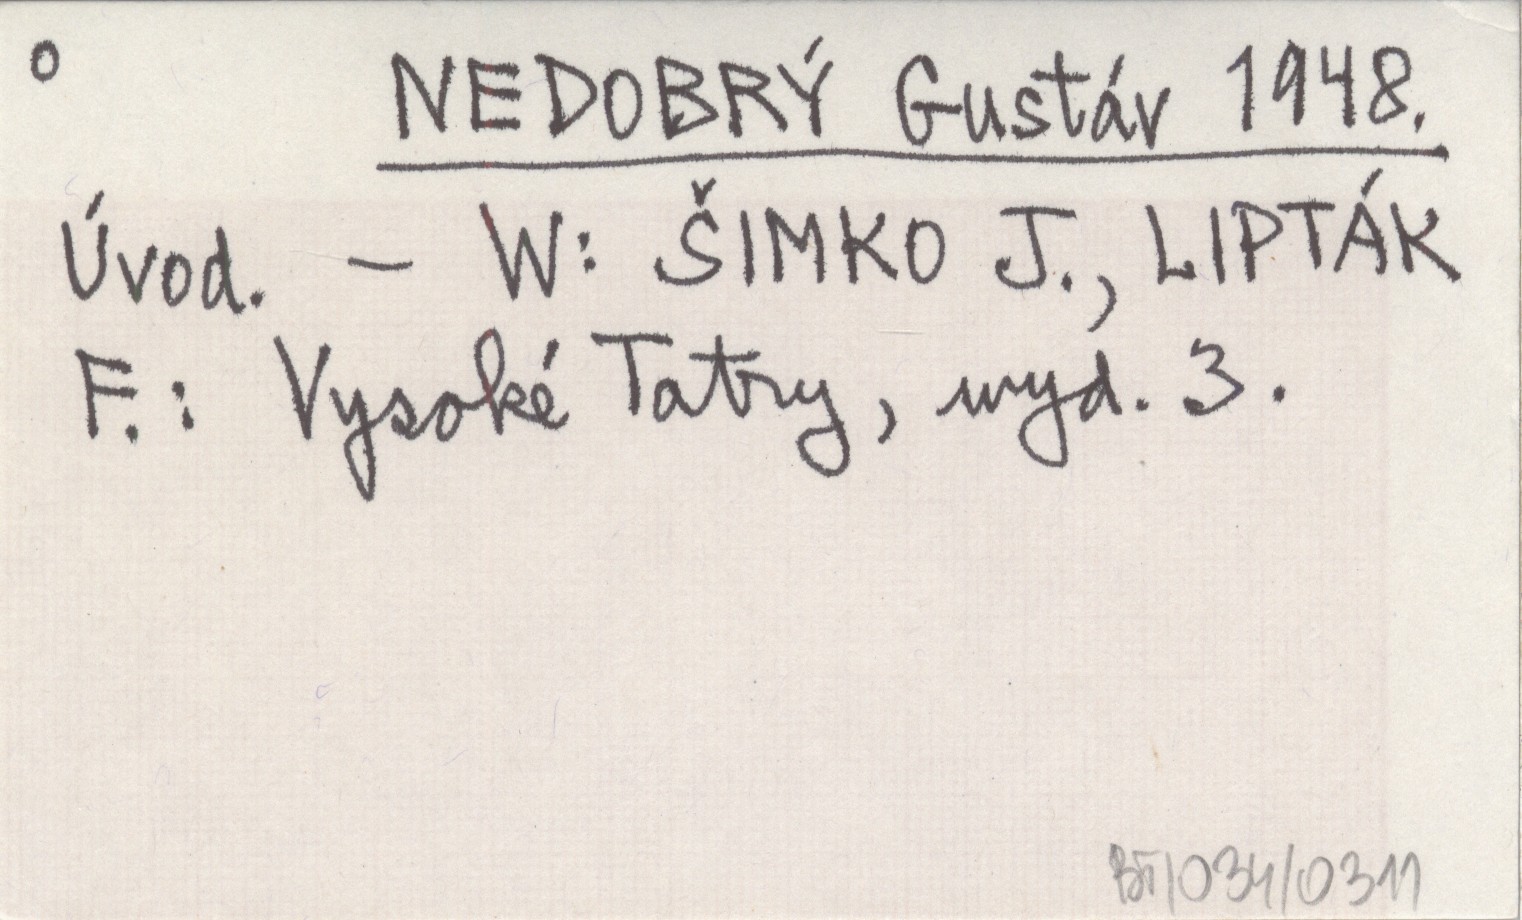 o NEDOBRÝ Gustáv 1948.
Úvod. — W: ŠIMKO J., LIPTÁK
F.: Vysoké Tatry, wyd. 3.
BT/034/0311